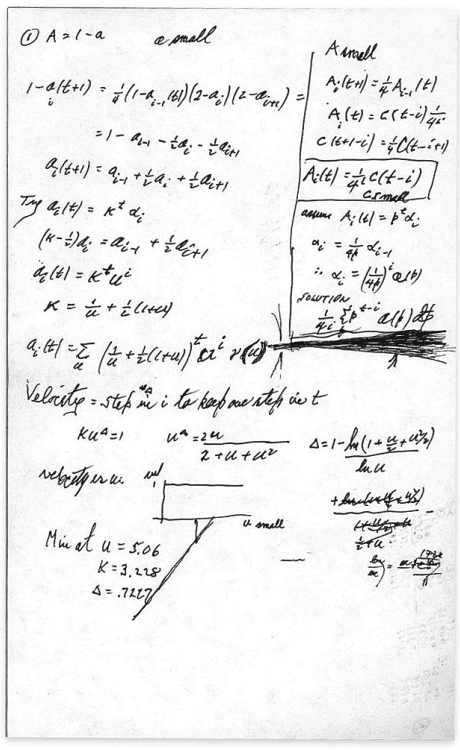 ① A = 1-a   a small
1-a_i(t+1) = 1/4 (1-a_{i-1}(t))(2-a_i)(2-a_{i+1}) =
= 1 - a_{i-1} - 1/2 a_i - 1/2 a_{i+1}
a_i(t+1) = a_{i-1} + 1/2 a_i + 1/2 a_{i+1}
Try a_i(t) = K^t α_i
(K-1/2) a_i = a_{i-1} + 1/2 a_{i+1}
a_i(t) = K^t u^i
K = 1/u + 1/2 (1+u)
a_i(t) = Σ_u (1/u + 1/2 (1+u))^t u^i
A small
A_i(t+1) = 1/4 A_{i-1}(t)
A_i(t) = C(t-i) 1/4^i
C(t+1-i) = 1/4 C(t-i+1)
A_i(t) = 1/4^i C(t-i)
C small
assume A_i(t) = p^t α_i
α_i = 1/4p α_{i-1}
∴ α_i = (1/4p)^i a(p)
SOLUTION
1/4^i Σ_p p^{t-i} a(p) dp
Velocity = step Δ in i to keep one step in t
K u^Δ = 1   u^Δ = 2u / 2+u+u²   Δ = 1 - ln(1 + u/2 + u²/2) / ln u
velocity vs u.   vel
1
u small
Min at u = 5.06
K = 3.228
Δ = .7227